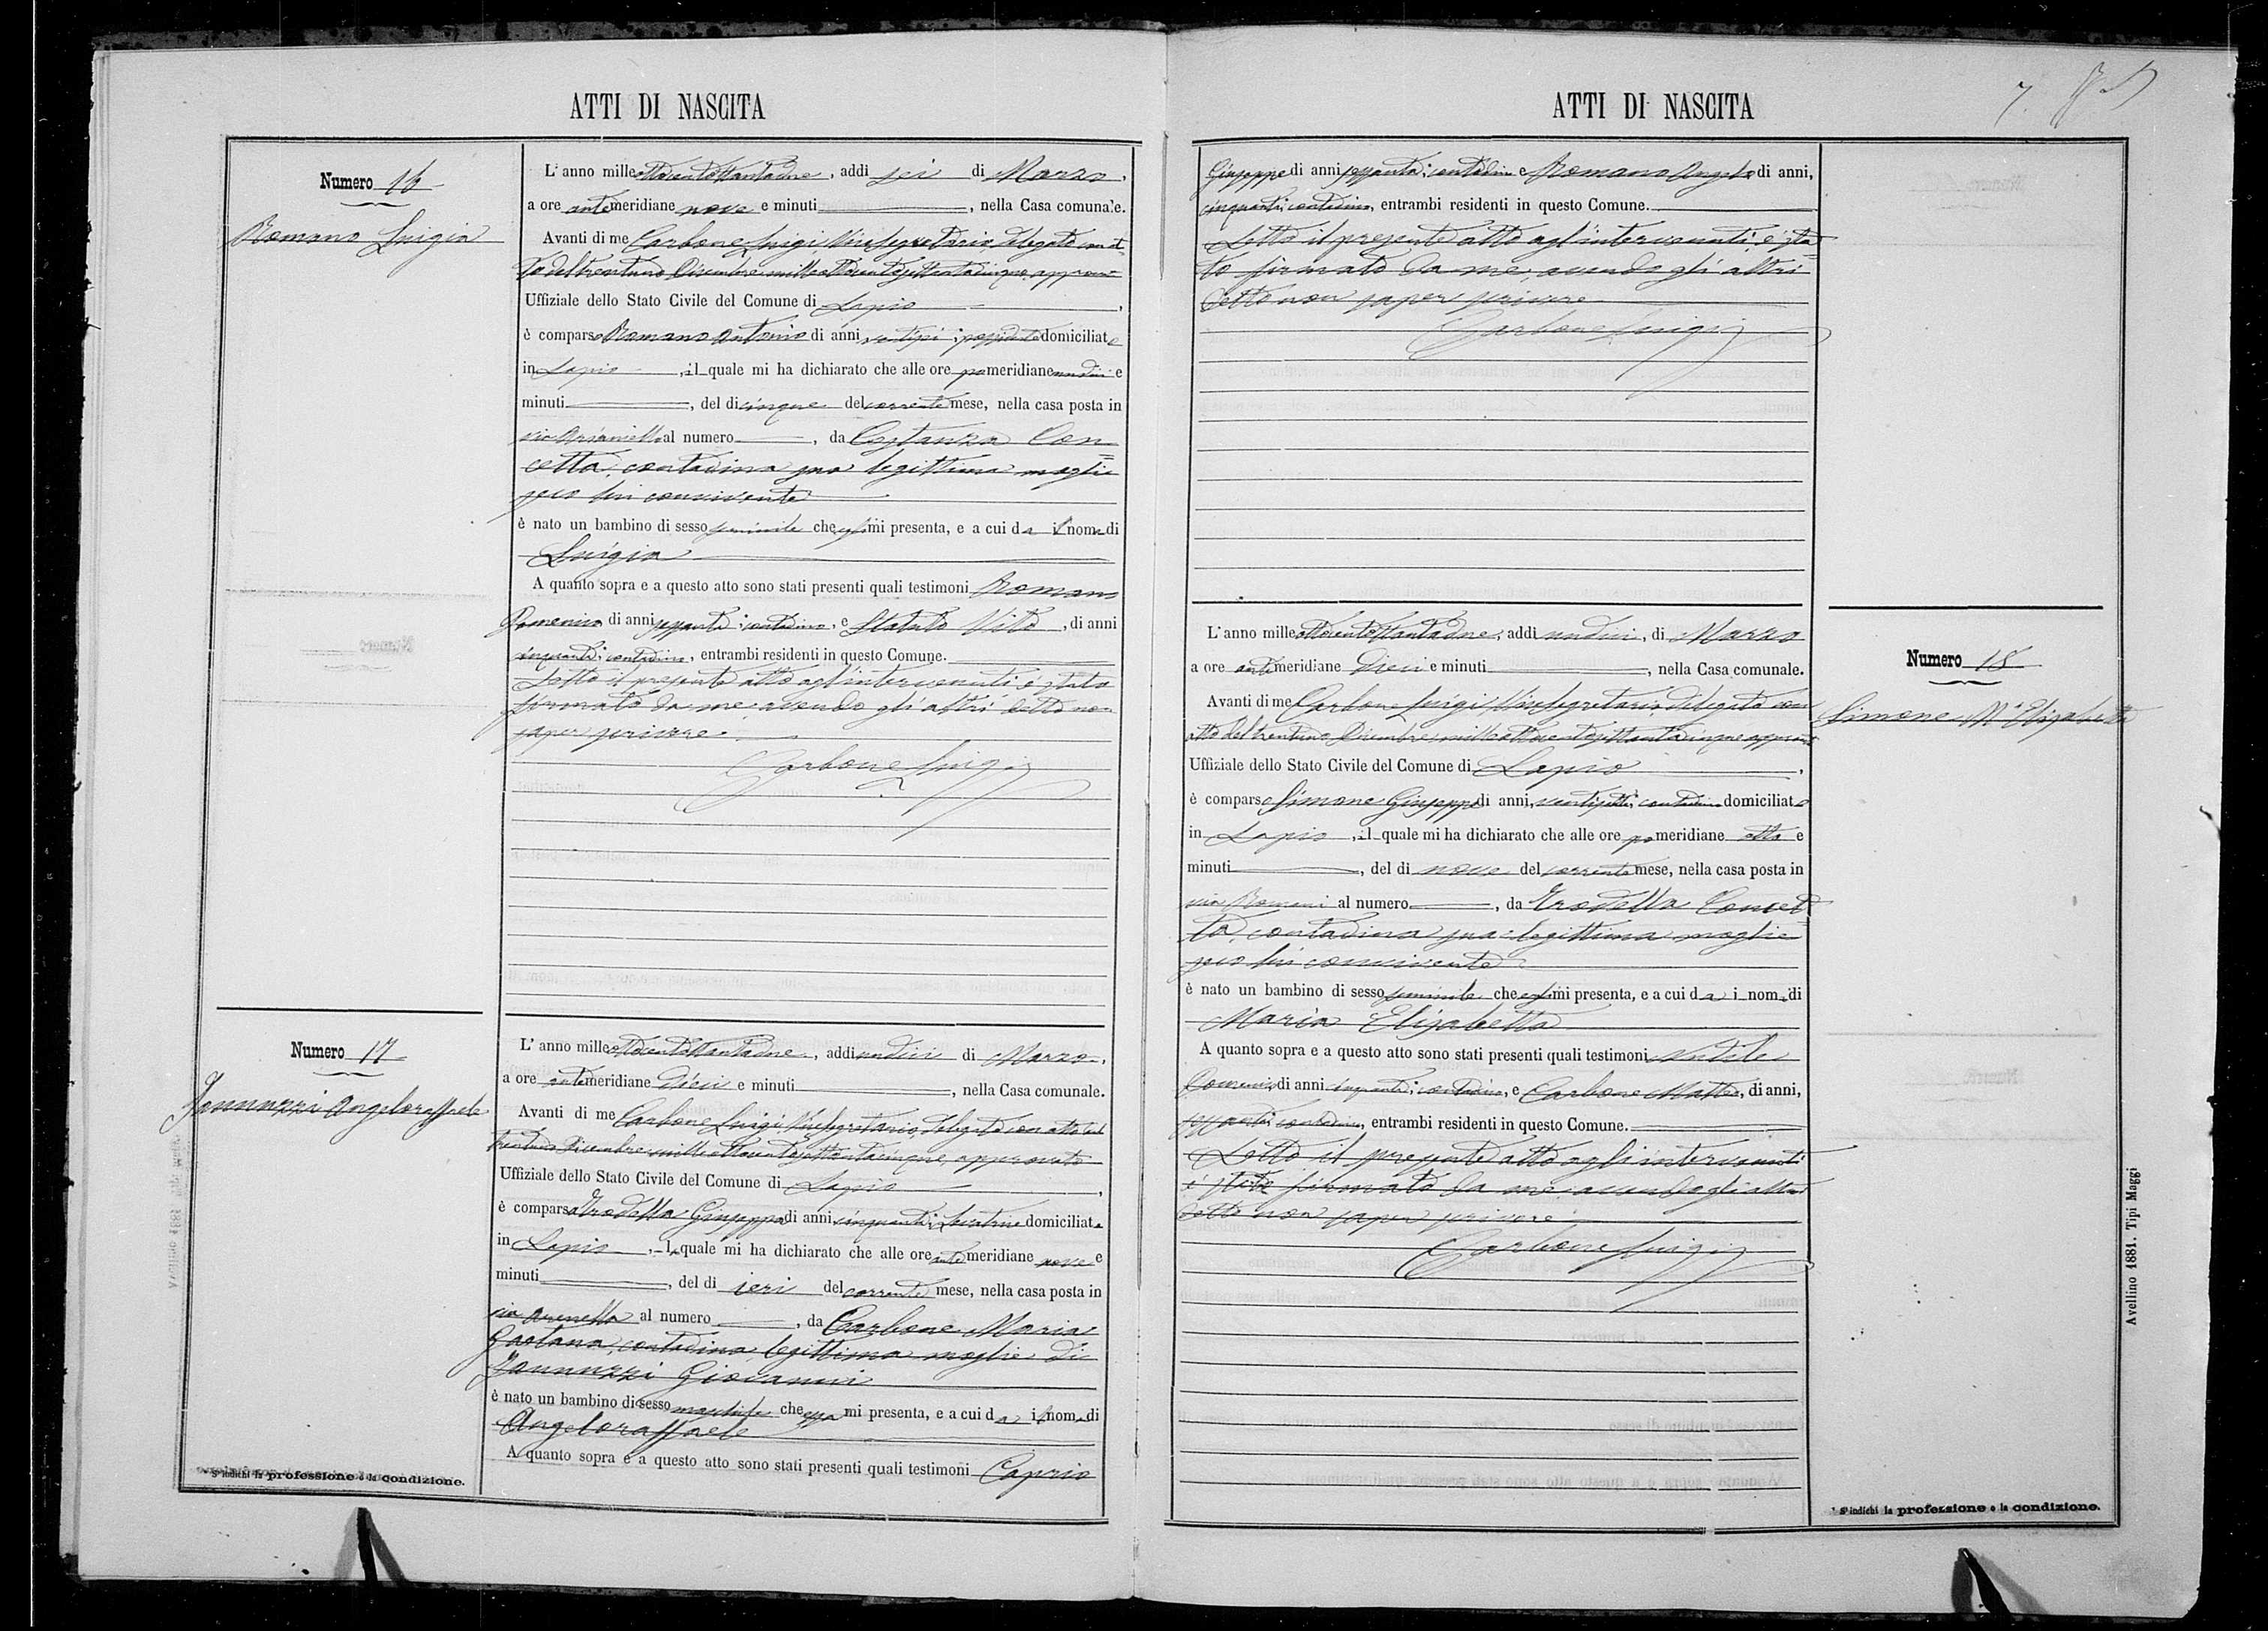 ATTI DI NASCITA
Numero 16
Romano Luigia
L'anno milleottocentottantadue, addi sei di Marzo,
a ore antemeridiane nove e minuti, nella Casa comunale.
Avanti di me Carbone Luigi Vicesegretario delegato con at-
to del trentuno Dicembre milleottocentosettantacinque, approvato
Uffiziale dello Stato Civile del Comune di Lapio,
è comparso Romano Antonio di anni ventisei; possidente domiciliato
in Lapio, il quale mi ha dichiarato che alle ore pomeridiane undici e
minuti, del di cinque del corrente mese, nella casa posta in
via Arianiello al numero, da Costanza Con=
cetta, contadina sua legittima moglie
seco lui convivente
è nato un bambino di sesso feminile che egli mi presenta, e a cui da il nome di
Luigia
A quanto sopra e a questo atto sono stati presenti quali testimoni Romano
Domenico di anni sessanta; contadino, e Statuto Vito, di anni
cinquanta; contadino, entrambi residenti in questo Comune.
Letto il presente atto agl'intervenuti è stato
firmato da me, avendo gli altri detto non
saper scrivere.
Carbone Luigi
Numero 17
Jannuzzi Angeloraffaele
L'anno milleottocentottantadue, addi undici di Marzo,
a ore antemeridiane dieci e minuti, nella Casa comunale.
Avanti di me Carbone Luigi Vicesegretario, delegato con atto del
trentuno Dicembre milleottocentosettantacinque, approvato
Uffiziale dello Stato Civile del Comune di Lapio,
è comparsa Trodella Giuseppa di anni cinquanta; levatrice domiciliata
in Lapio, la quale mi ha dichiarato che alle ore antemeridiane nove e
minuti, del di ieri del corrente mese, nella casa posta in
via Arenella al numero, da Carbone Maria
Gaetana, contadina legittima moglie di
Jannuzzi Giovanni
è nato un bambino di sesso maschile che essa mi presenta, e a cui da il nome di
Angeloraffaele
A quanto sopra e a questo atto sono stati presenti quali testimoni Caprio
* S'indichi la professione e la condizione.
ATTI DI NASCITA
7.
Giuseppe di anni sessanta; contadino e Romano Angelo di anni,
cinquanta; contadino, entrambi residenti in questo Comune.
Letto il presente atto agl'intervenuti, è sta=
to firmato da me, avendo gli altri
detto non saper scrivere
Carbone Luigi
Numero 18
Simone Mª Elisabetta
L'anno milleottocentottantadue, addi undici, di Marzo
a ore antemeridiane dieci e minuti, nella Casa comunale.
Avanti di me Carbone Luigi Vicesegretario, delegato con
atto del trentuno Dicembre milleottocentosettantacinque approvato
Uffiziale dello Stato Civile del Comune di Lapio,
è comparso Simone Giuseppe di anni, ventisette; contadino domiciliato
in Lapio, il quale mi ha dichiarato che alle ore pomeridiane otto e
minuti, del di nove del corrente mese, nella casa posta in
via Romani al numero, da Trodella Concet=
ta, contadina sua legittima moglie
seco lui convivente
è nato un bambino di sesso feminile che egli mi presenta, e a cui da i nome di
Maria Elisabetta
A quanto sopra e a questo atto sono stati presenti quali testimoni
di anni cinquanta; contadino, e Carbone Matteo, di anni,
sessanta; contadino, entrambi residenti in questo Comune.
Letto il presente atto agli intervenuti
è stato firmato da me avendo gli altri
detto non saper scrivere
Carbone Luigi
* S'indichi la professione e la condizione.
Avellino 1881. Tipi Maggi